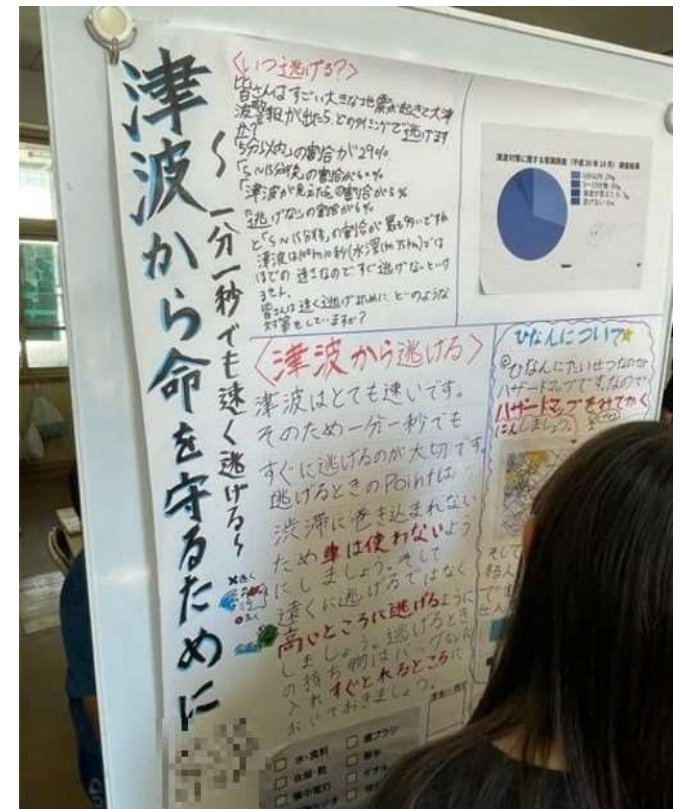 津波から命を守るために
～一分一秒でも速く逃げる～
〈いつ逃げる?〉
皆さんはすごい大きな地震が起きて大津
波警報が出たら、どのタイミングで逃げます
か?
「5分以内」の割合が29%
「5～15分後」の割合が60%
「津波が見えたら」の割合が5%
「逃げない」の割合が6%
と「5～15分後」の割合が最も多いですね
津波は
ほどの速さなのですぐ逃げないといけ
ません。
皆さんは速く逃げるために、どのような
対策をしていますか?
津波対策に関する意識調査(平成30年10月)調査結果
〈津波から逃げる〉
津波はとても速いです。
そのため一分一秒でも
すぐに逃げるのが大切です。
逃げるときのPointは
渋滞に巻き込まれない
ため車は使わないよう
にしましょう。そして
遠くに逃げるではなく
高いところに逃げるように
しましょう。逃げるとき
の持ち物はバッグなどに
入れすぐとれるところに
おいておきましょう。
ひなんについて
◎ひなんにたいせつなのが
ハザードマップです。なので
ハザードマップをみてかく
にんしましょう。
そして
□ 水・食料
□ 衣服・靴
□ 懐中電灯
□ 歯ブラシ
□ タオル